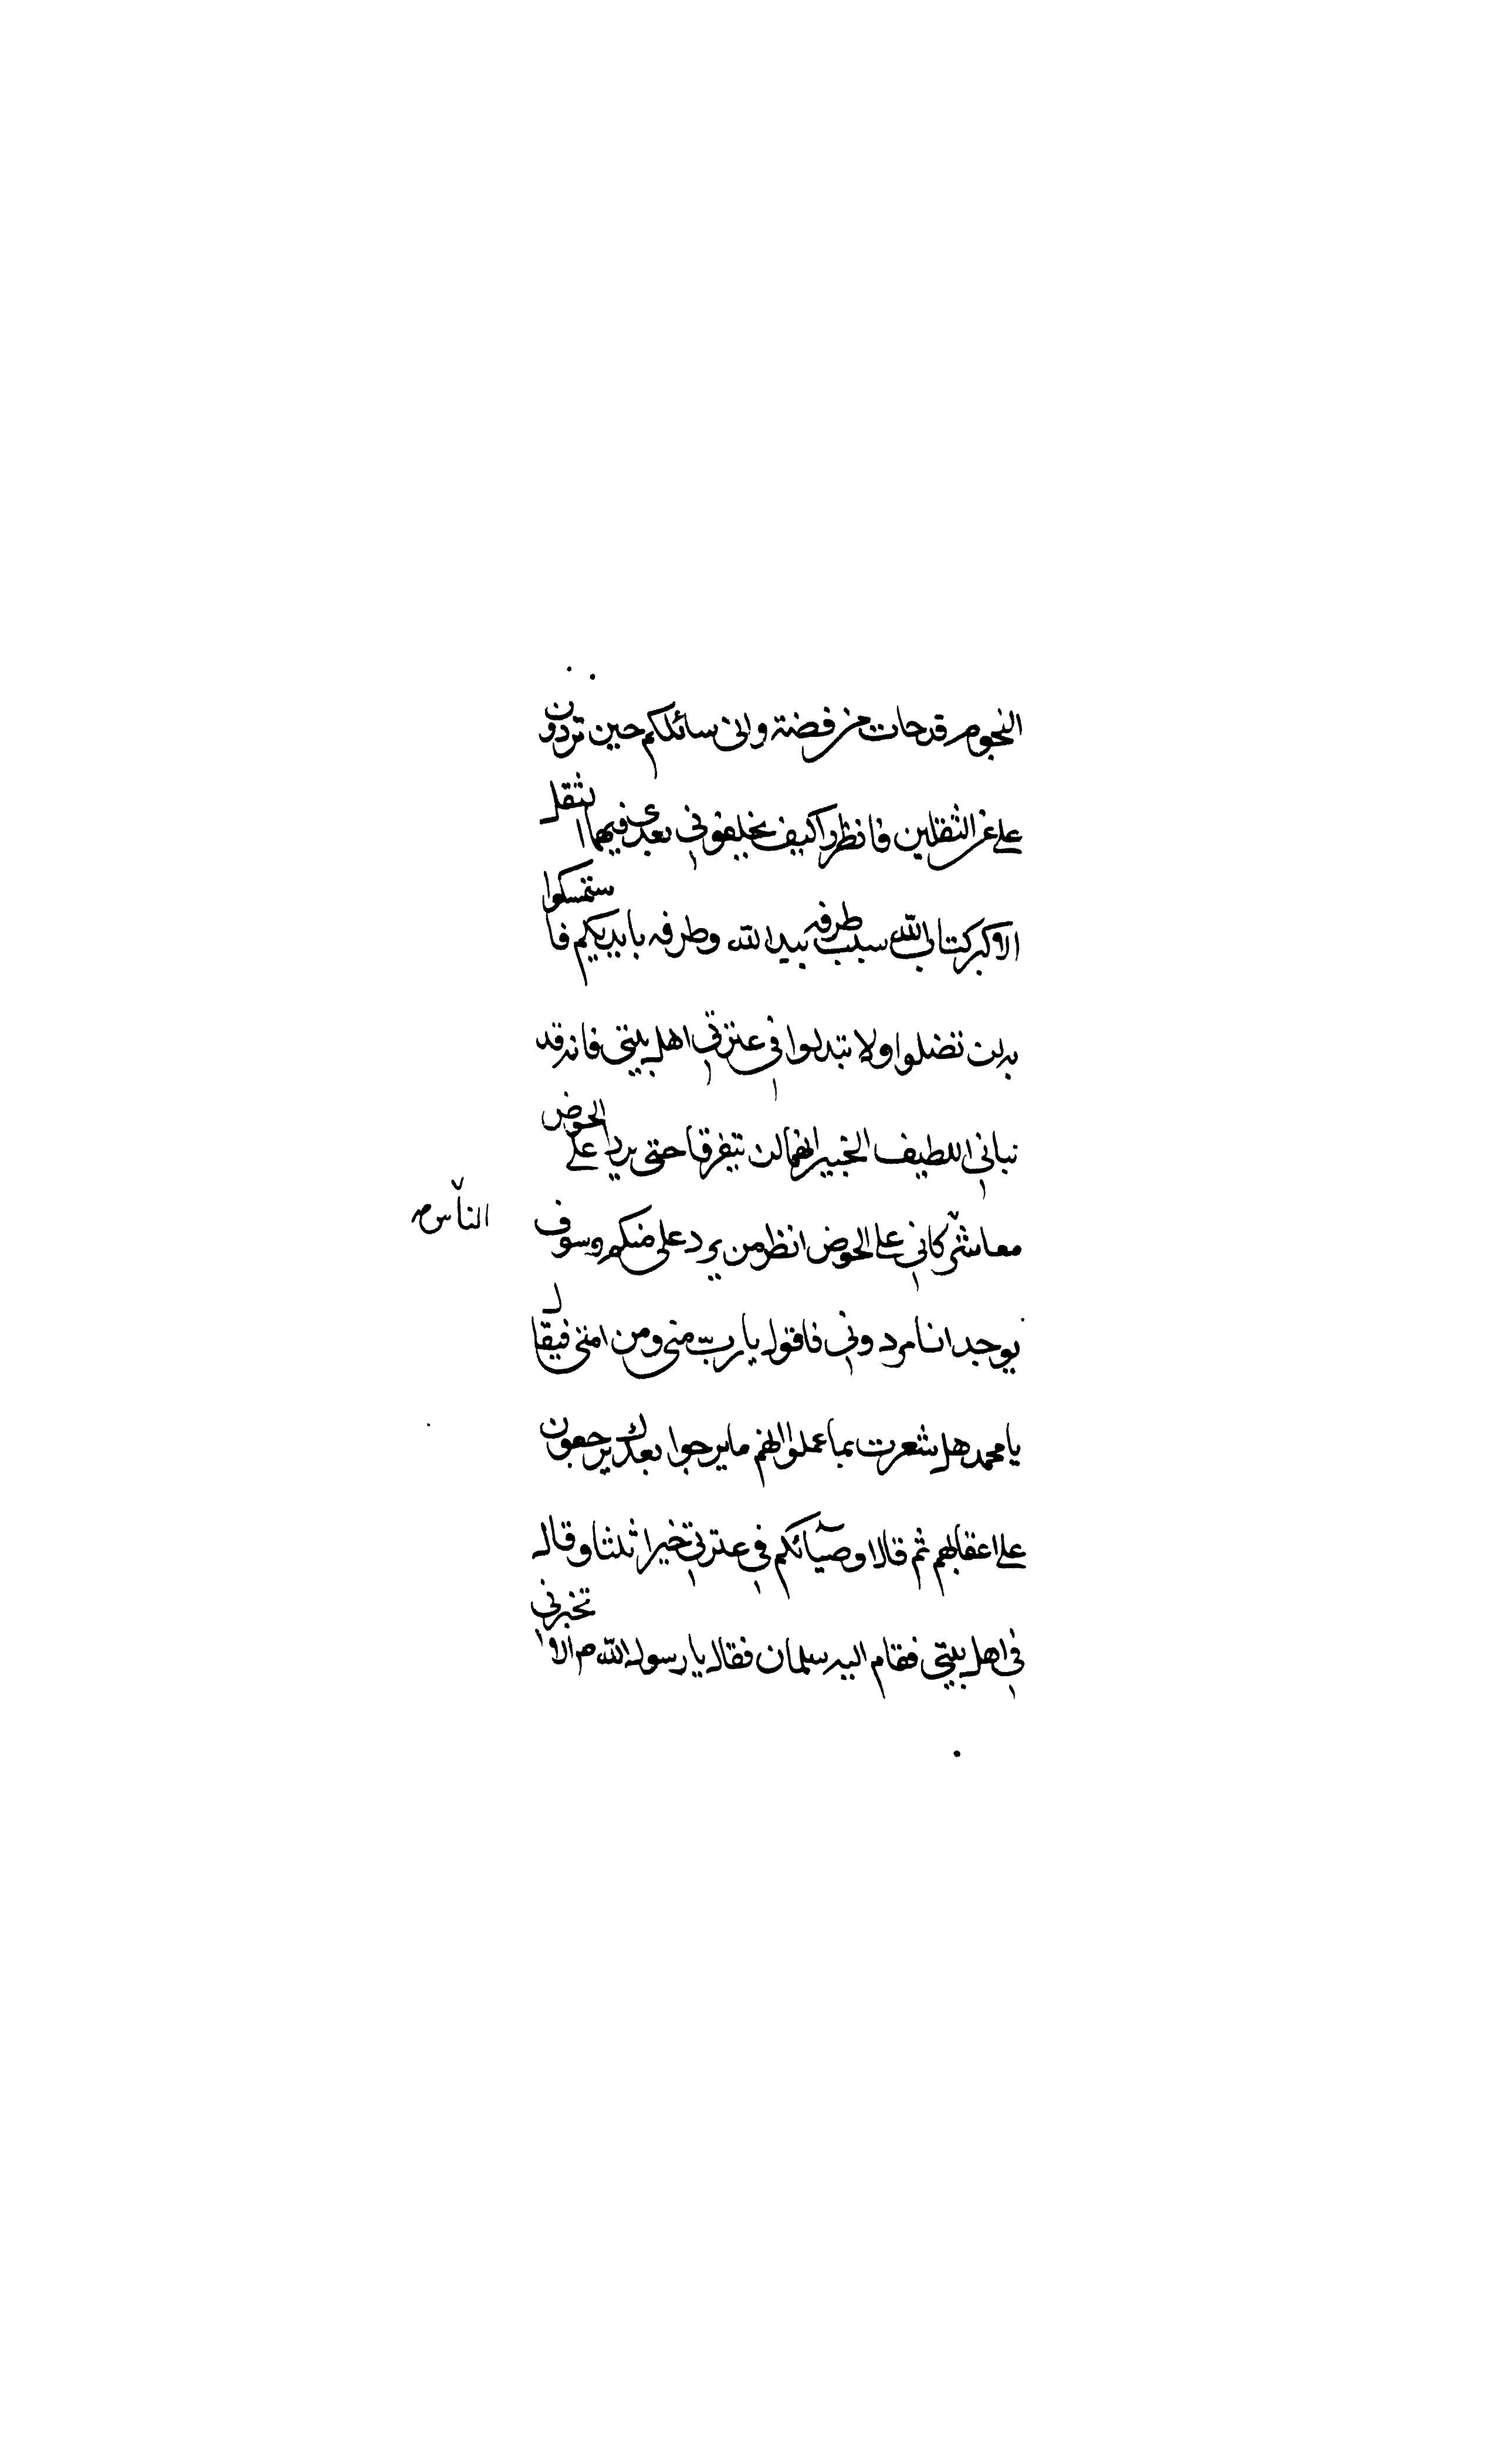 النجوم قدحات من فضة واني سائلكم حين تردون
علي عن الثقلين فانظروا كيف تخلفوني بعدي فيهما الثقل
الاكبر كتاب الله سبب طرفه بيد الله وطرفه بايديكم فاستمسكوا
به لن تضلوا ولا تبدلوا في عترتي اهل بيتي فانه قد
نباني اللطيف الخبير انهما لن يتفرقا حتى يردا علي الحوض
معاشر كاني على الحوض انظر من يرد علي منكم وسوف
الناس
يوجد اناس دوني فاقول يا رب مني ومن امتي فيقال
يا محمد هل شعرت بما عملوا انهم ما يرجوا بعدك يرجعون
على اعقابهم ثم قال اوصيكم في عترتي خيرا ثلثا وقال
في اهل بيتي فقام اليه سلمان فقال يا رسول الله الا تخبرني